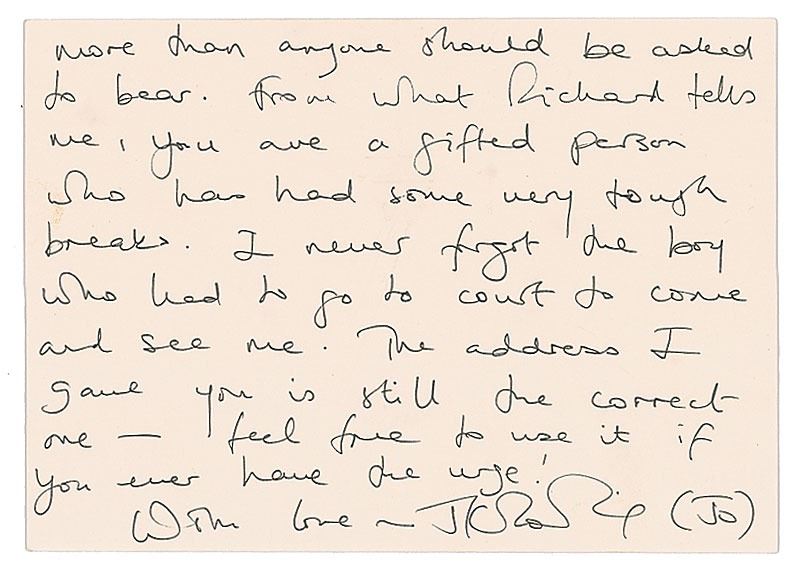 more than anyone should be asked
to bear. From what Richard tells
me, you are a gifted person
who has had some very tough
breaks. I never forgot the boy
who had to go to court to come
and see me. The address I
gave you is still the correct
one — feel free to use it if
you ever have the urge!
With love ~ JKRowling (Jo)